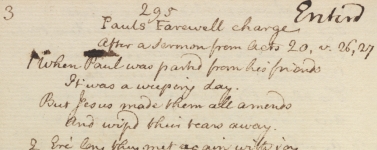 3
295
Entird
Pauls Farewell charge
After a sermon from Acts 20, v. 26, 27
1 When Paul was parted from his friends
It was a weeping day.
But Jesus made them all amends
And wip'd their tears away.
2 Ere long they met again with joy